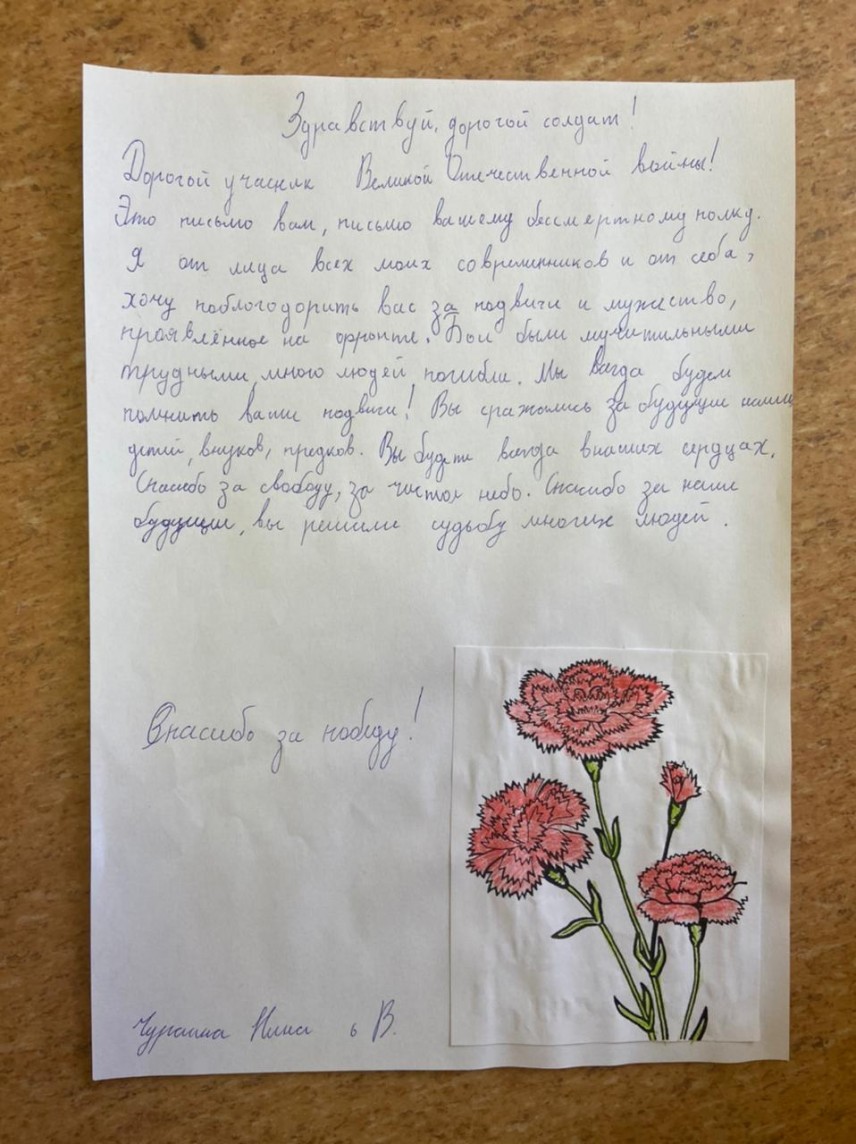 Здравствуй, дорогой солдат!
Дорогой учасник Великой Отечественной войны!
Это письмо вам, письмо вашему бессмертному полку.
Я от лица всех моих современников и от себа,
хочу поблогодорить вас за подвиги и мужество,
проявлённое на фронте. Бои были мучительными
трудными, много людей погибли. Мы всегда будем
помнить ваши подвиги! Вы сражались за будущие наших
детей, внуков, предков. Вы будете всегда внаших сердцах.
Спасибо за свободу, за чистое небо. Спасибо за наше
будущие, вы решили судьбу многих людей.
Спасибо за победу!
Нина 6 В.